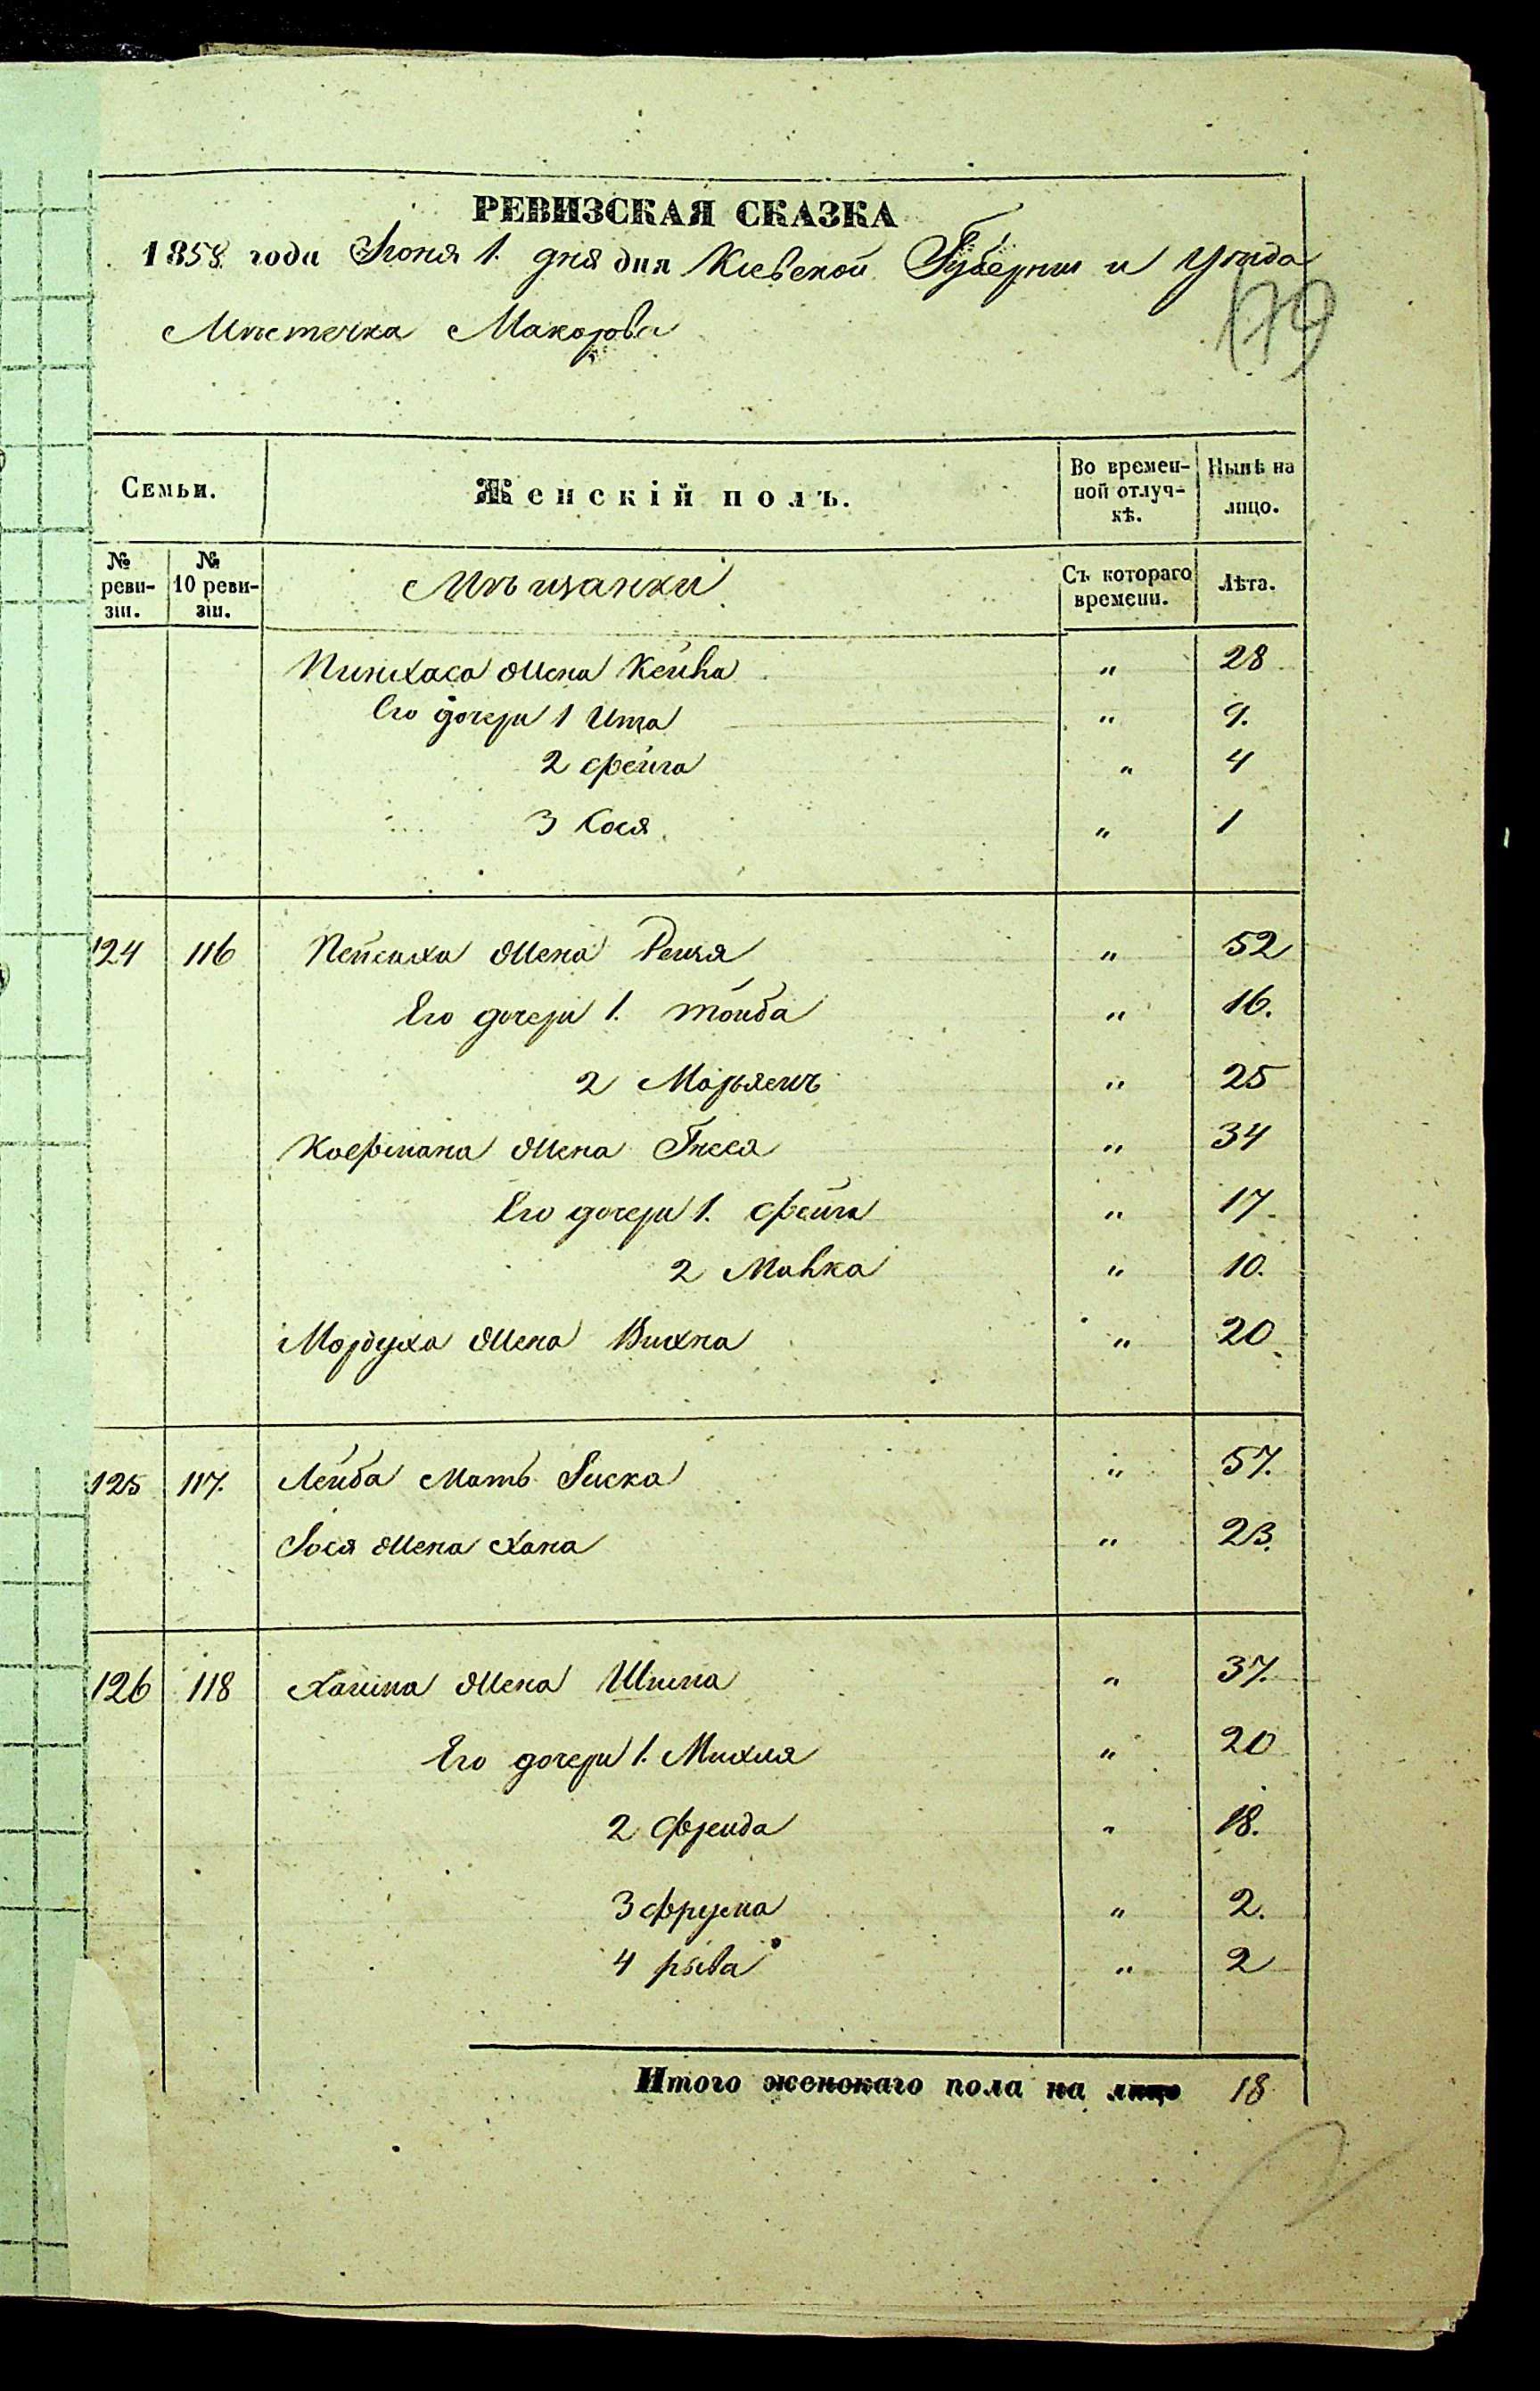 РЕВИЗСКАЯ СКАЗКА
1858 года Июня 1. дня дня Кіевской Губерніи и Уѣзда
Мѣстечка Макарова
179
Семьи. Женскій полъ. Во времен-ной отлуч-кѣ. Нынѣ на лицо.
№ реви-зіи. № 10 реви-зіи. Мѣщанки Съ котораго времени. Лѣта.
Пинхаса жена Кейла " 28
Его дочери 1 Ита " 9.
2 Фейга " 4
3 Хося " 1
124 116 Пейсаха жена Рейзя " 52
Его дочери 1. Тойба " 16.
2 Марьямъ " 25
Кофмана жена Гнеся " 34
Его дочери 1. Фейга " 17
2 Малка " 10.
Мордуха жена Вихна " 20
125 117. Лейба мать Риска " 57.
Іося жена Хана " 23.
126 118 Хаима жена Шима " 37.
Его дочери 1. Михля " 20
2 Фрейда " 18.
3 Фрума " 2.
4 Рыва " 2
Итого женскаго пола на лицо 18